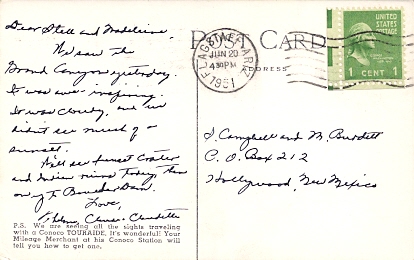 Dear Stell and Madeline,
We saw the
Grand Canyon yesterday.
It was awe inspiring.
It was cloudy, and we
didn't see much of a
sunset.
Will see Sunset Crater
and Indian ruins today, then
on to Boulder Dam.
Love,
P.S. We are seeing all the sights traveling
with a Conoco TOURAIDE. It's wonderful! Your
Mileage Merchant at his Conoco Station will
tell you how to get one.
POST CARD
ADDRESS
FLAGSTAFF, ARIZ.
JUN 20
4 30 PM
1951
UNITED
STATES
POSTAGE
1 CENT 1
S. Campbell and M. Burdett
C. O. Box 212
Hollywood, New Mexico